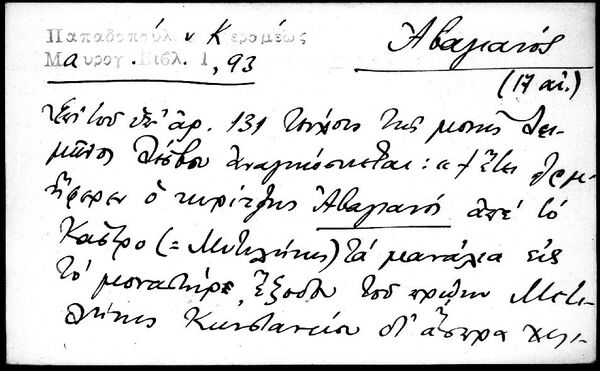 Παπαδοπούλ υ Κεραμέως
Μαυρογ. Βιβλ. 1, 93
Ἀβαγιανός
(17 αἰ.)
Ἐπὶ τοῦ ὑπ' ἀρ. 131 τεύχους τῆς μονῆς Λει-
μῶνος Λέσβου ἀναγινώσκεται: «†Ἔτει
ἤφερεν ὁ κυρίτζης Ἀβαγιανός ἀπὲ τὸ
Κάστρο (= Μυτιλήνης) τὰ μανάλια εἰς
τὸ μοναστήρι, ἔξοδον τοῦ πρώην Μυτι-
λήνης Κωνσταντίου δι' ἄσπρα χίλι-